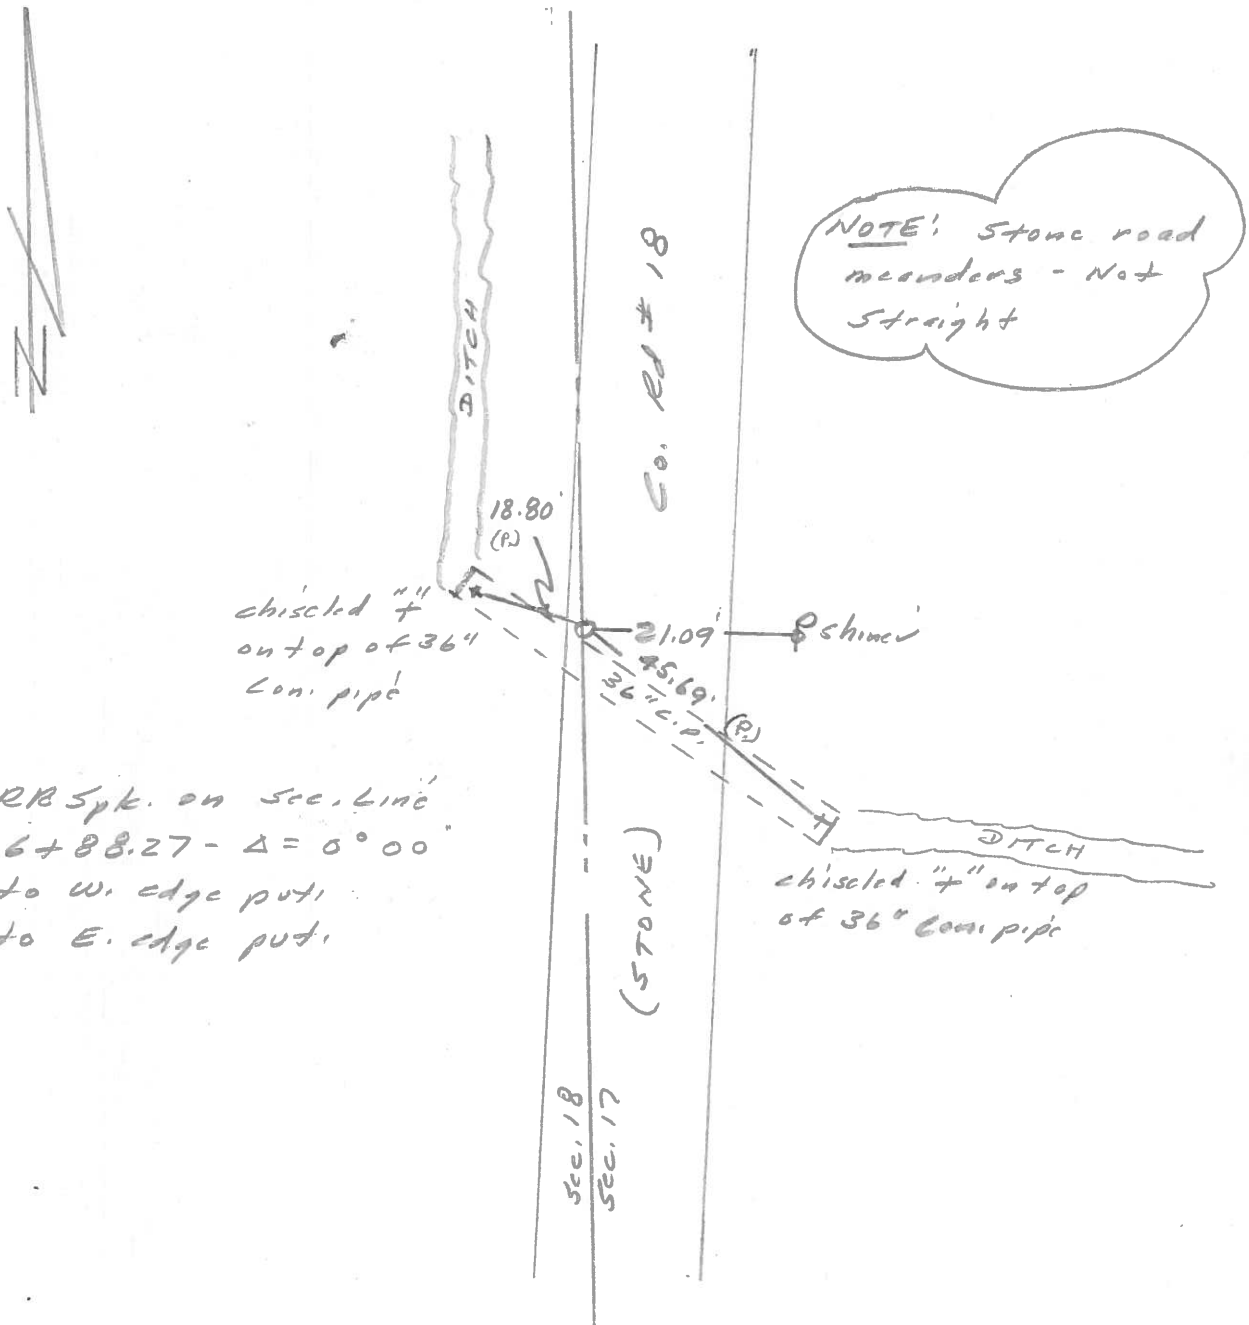 N
NOTE: Stone road
meanders - Not
Straight
Co. Rd # 18
DITCH
18.80'
(P.)
chiseled "+"
on top of 36"
Con. pipe
21.09'
shiner
45.69'
(P.)
36" C.P.
RR Spk. on Sec. Line
6+88.27 - Δ = 0° 00"
to W. edge pvt.
to E. edge pvt.
(STONE)
DITCH
chiseled "+" on top
of 36" Con. pipe
Sec. 18
Sec. 17